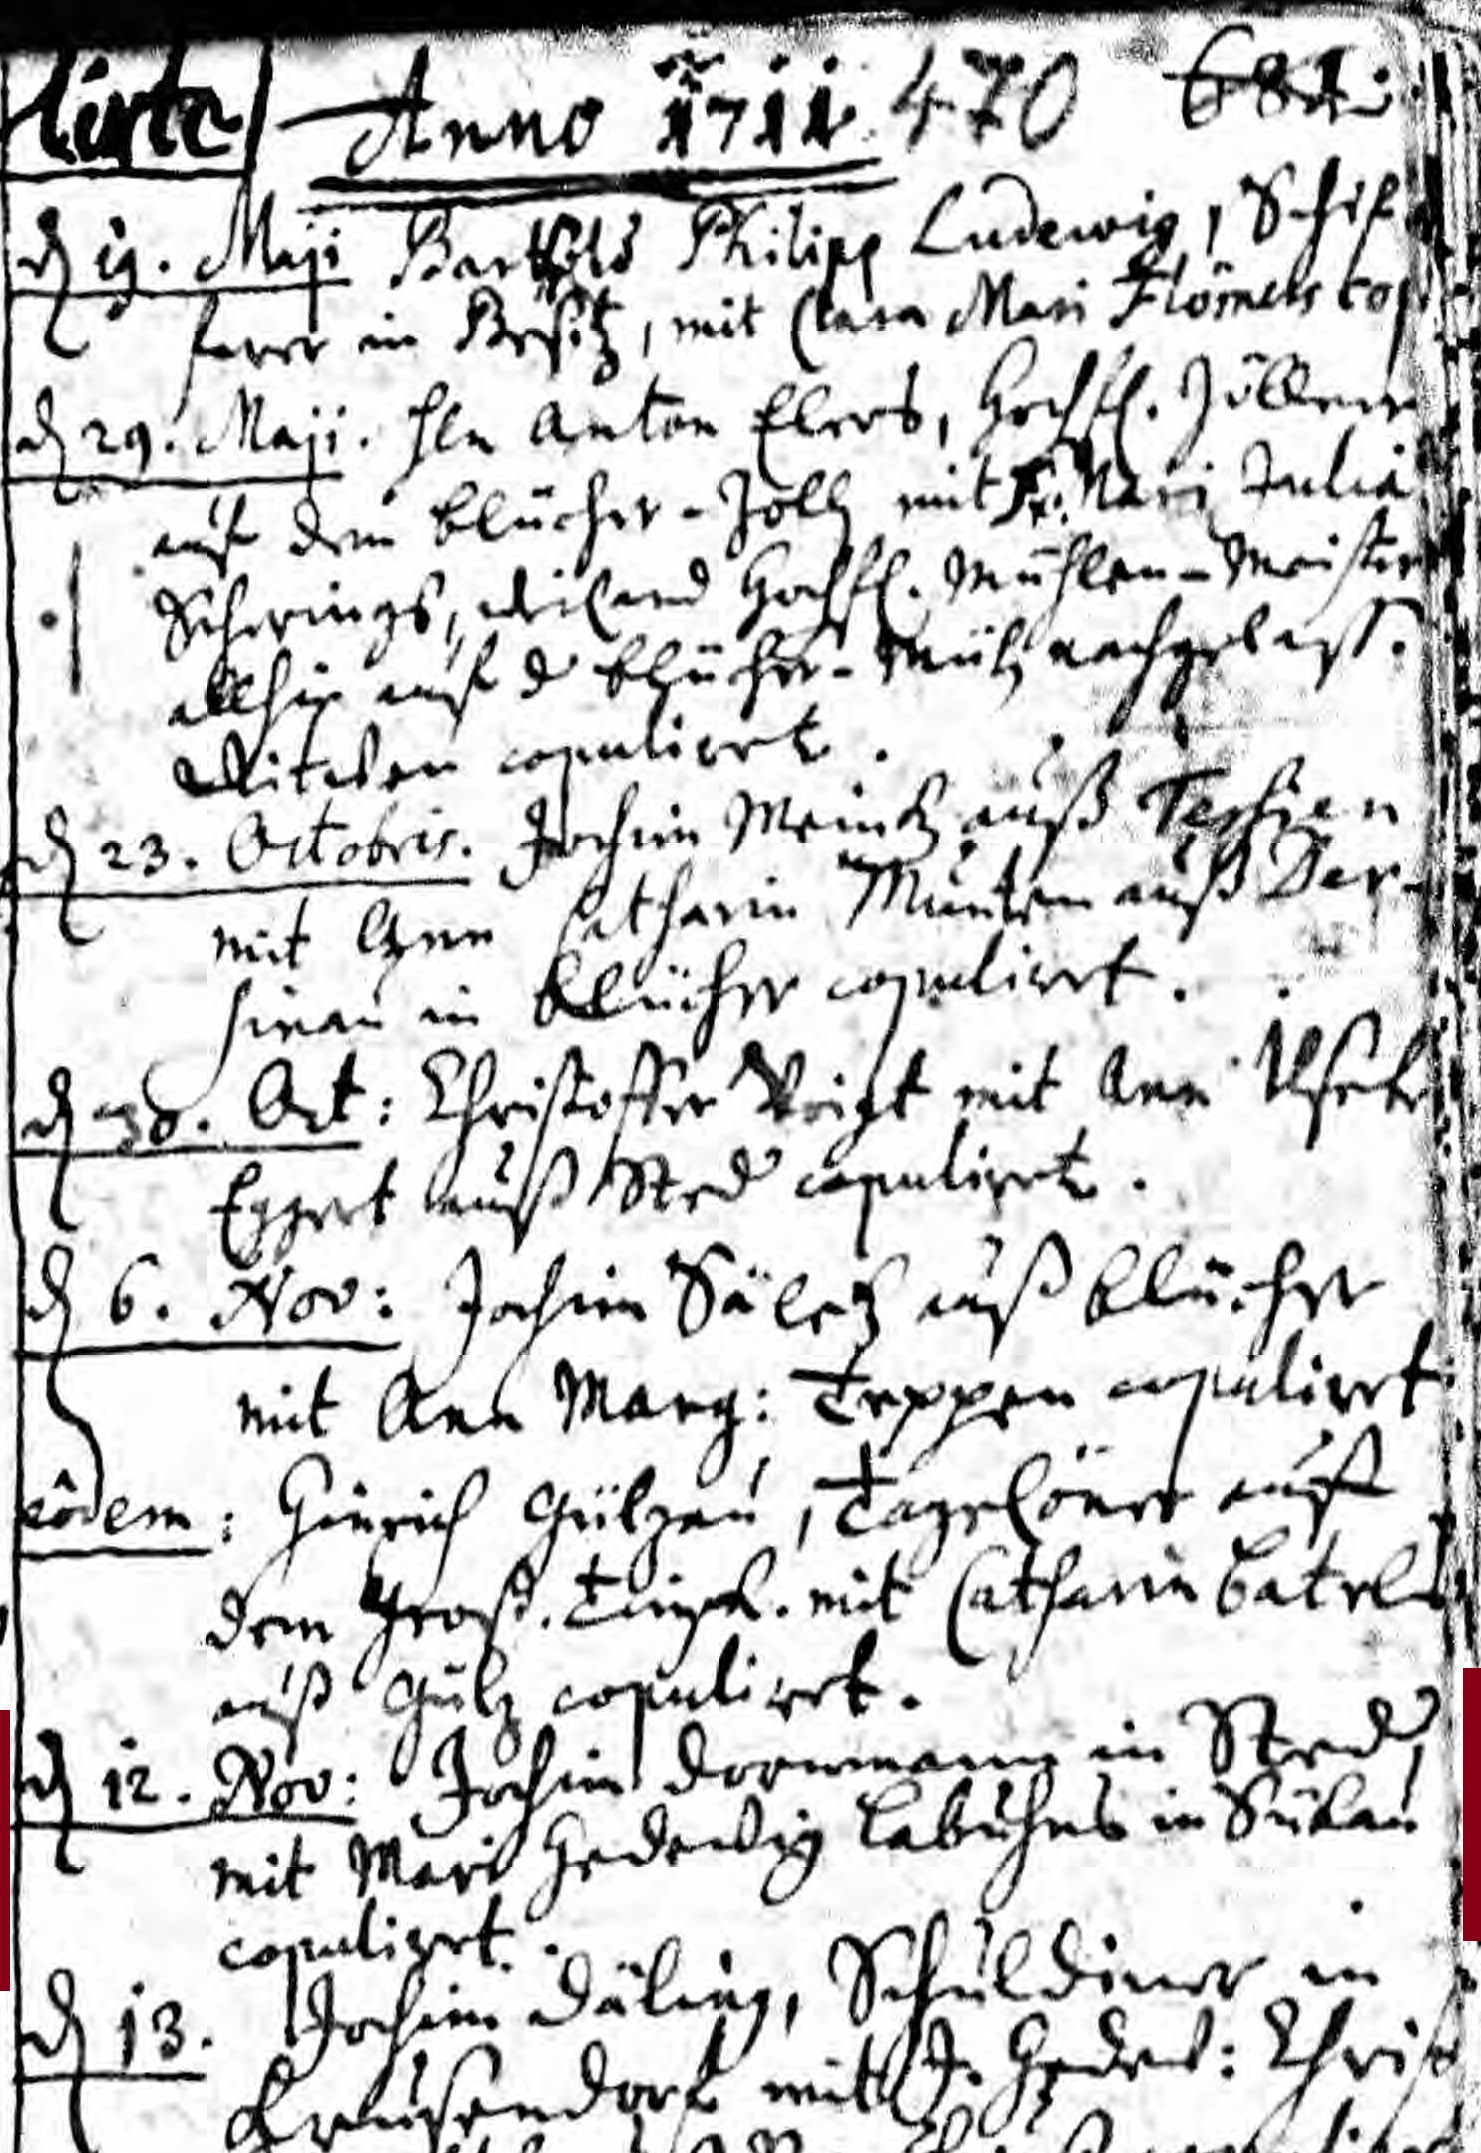 Anno 1711. 470 681.
d 19. Maji Barthold Philipp Ludewig, Schif-
ferer in Besitz, mit Clara Mari Flömers cop
d 29. Maji. Hln Anton Elers, Hochfl. Zöllner
auf dem Blücher-Zoll mit Fr. Mari Julia
Scherings, weiland Hochfl. Mühlen-Meisters
allhie auf d Blücher-Mühl nachgelass.
Witwen copuliert.
d 23. Octobris. Jochim Meintz auß Teschen
mit Ann Catharin Münten auß Der-
senau in Blücher copuliert.
d 30. Oct: Christoffer Voigt mit Ann
Eggert auß copuliert.
d 6. Nov: Jochim Sületz auß Blücher
mit Ann Marg: Teppen copuliert
eôdem: Hinrich Gültzau, Tagelöner auf
dem Groß. mit Catharin Batels
auß Gültz copuliert.
d 12. Nov: Jochim Dormann in
mit Mari Hedewig Labuhns in Sückau
copuliert.
d 13. Jochim Düling, Schuldiener in
mit J. Hedew: Christ